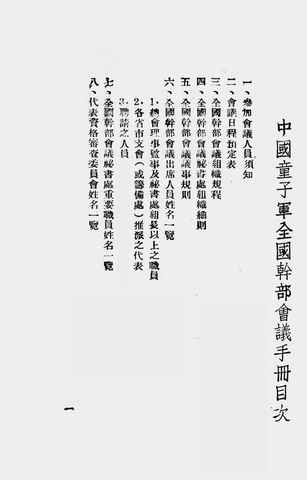 中國童子軍全國幹部會議手冊目次
一、參加會議人員須知
二、會議日程預定表
三、全國幹部會議組織規程
四、全國幹部會議祕書處組織細則
五、全國幹部會議議事規則
六、全國幹部會議出席人員姓名一覽
1.總會理事監事及祕書處組長以上之職員
2.各省市支會（或籌備處）推派之代表
3.聘請之人員
七、全國幹部會議祕書處重要職員姓名一覽
八、代表資格審查委員會姓名一覽
一